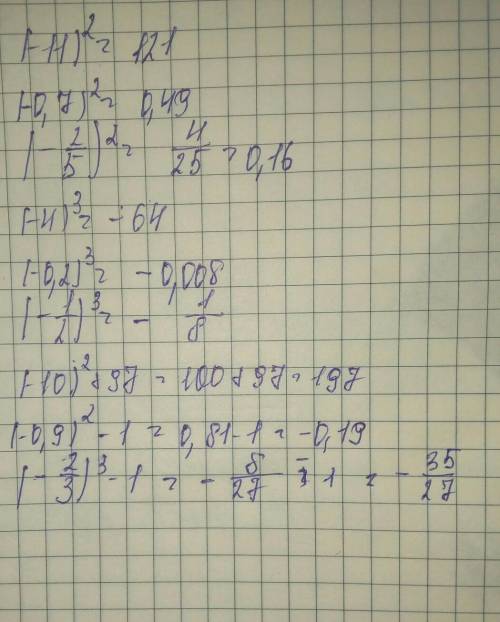 (-11)² = 121
(-0,7)² = 0,49
(-2/5)² = 4/25 = 0,16
(-4)³ = -64
(-0,2)³ = -0,008
(-1/2)³ = -1/8
(-10)² + 97 = 100 + 97 = 197
(-0,9)² - 1 = 0,81 - 1 = -0,19
(-2/3)³ - 1 = -8/27 - 1 = -35/27